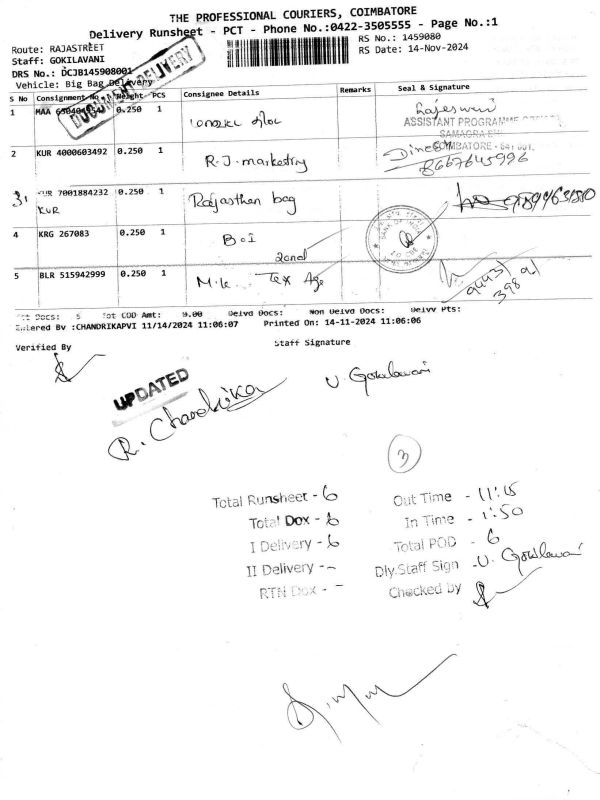 THE PROFESSIONAL COURIERS, COIMBATORE
Delivery Runsheet - PCT - Phone No.:0422-3505555 - Page No.:1
Route: RAJASTREET
RS No.: 1459080
Staff: GOKILAVANI
RS Date: 14-Nov-2024
DRS No.: DCJB145908001
Vehicle: Big Bag Delivery
DOCUMENT DELIVERY
S No Consignment No Weight PCS Consignee Details Remarks Seal & Signature
1 MAA 0.250 1
ASSISTANT PROGRAMME
COIMBATORE - 641 001
2 KUR 4000603492 0.250 1 R.J. marketing Dinesh
8667645996
3 KUR 7001884232 0.250 1 Rajasthan bag
KUR
4 KRG 267083 0.250 1 BOI
BANK OF INDIA
5 BLR 515942999 0.250 1 M.k. Tex Age
Docs: 6 Tot COD Amt: 0.00 Delvd Docs: Non Delvd Docs: Delvy Pts:
Entered By :CHANDRIKAPVI 11/14/2024 11:06:07 Printed On: 14-11-2024 11:06:06
Verified By Staff Signature
UPDATED
R. Chandrika
U. Gokilavani
3
Total Runsheet - 6 Out Time - 11:15
Total Dox - 6 In Time - 1:50
I Delivery - 6 Total POD - 6
II Delivery - - Dly.Staff Sign - U. Gokilavani
RTN Dox - - Checked by